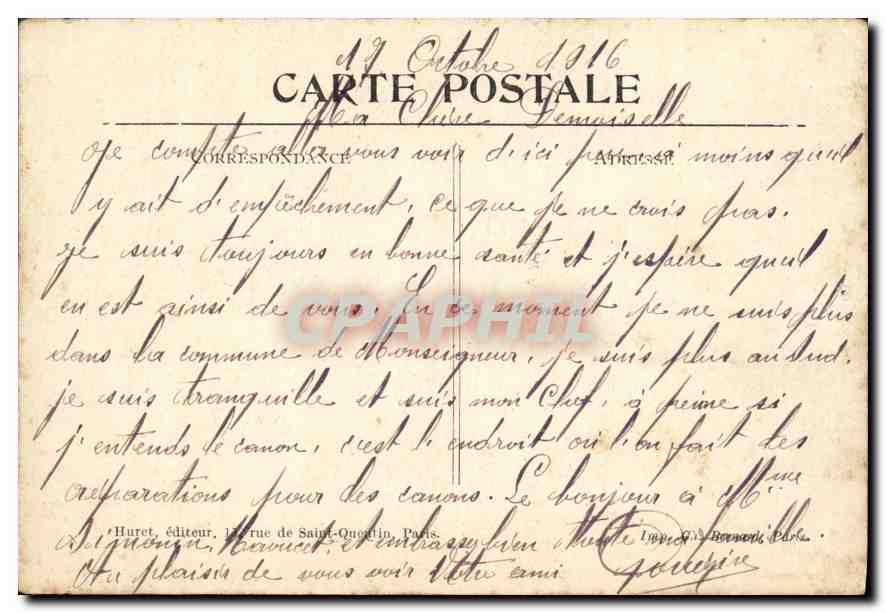 17 Octobre 1916
CARTE POSTALE
Ma Chère Demoiselle
CORRESPONDANCE
ADRESSE
Je compte aller vous voir d'ici peu à moins qu'il
y ait d'empêchement, ce que je ne crois pas.
je suis toujours en bonne santé et j'espère qu'il
en est ainsi de vous. En ce moment je ne suis plus
CPAPHIL
dans la commune de Monseigneur, je suis plus au Sud.
je suis tranquille et suis mon Chef, à peine si
j'entends le canon, c'est l'endroit où l'on fait des
réparations pour des canons. Le bonjour à Mme
Huret, éditeur, rue de Saint-Quentin, Paris.
Imp. Paris.
et embrassez bien toute ma famille
Au plaisir de vous voir Votre ami